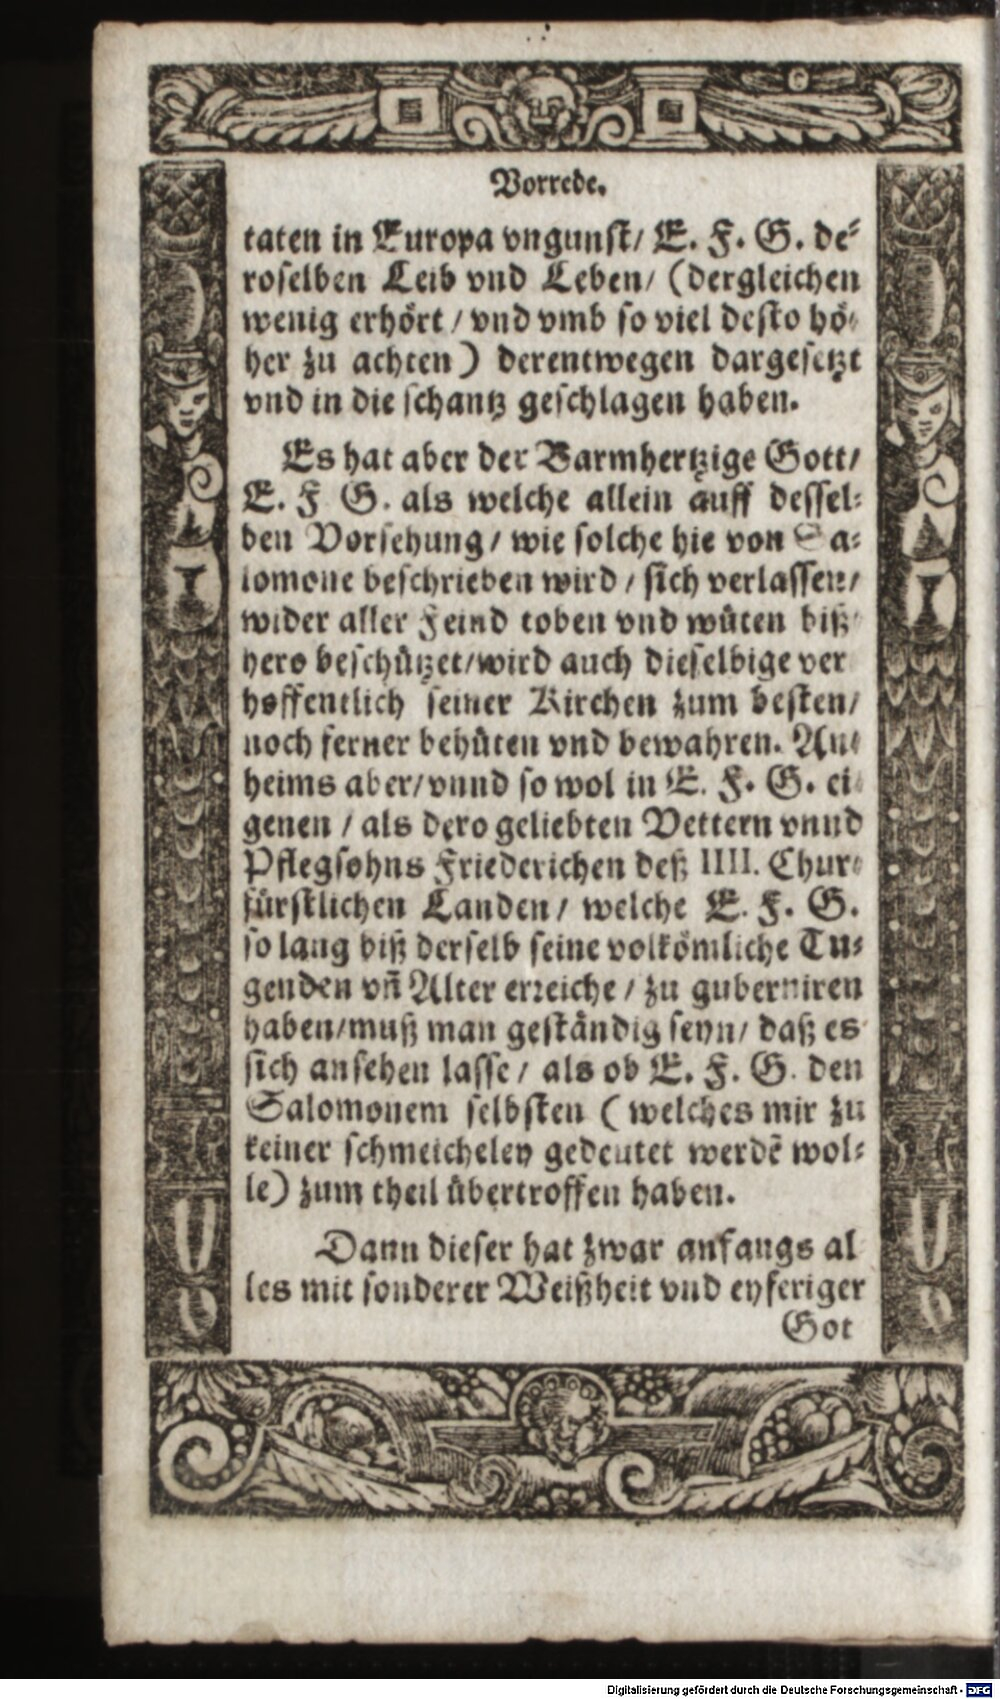 Vorrede.
taten in Europa vngunst/ E. F. G. de-
roselben Leib vnd Leben/ (dergleichen
wenig erhört / vnd vmb so viel desto hö-
her zu achten) derentwegen dargesetzt
vnd in die schantz geschlagen haben.
Es hat aber der Barmhertzige Gott/
E. F G. als welche allein auff dessel-
ben Vorsehung / wie solche hie von Sa-
lomone beschrieben wird / sich verlassen/
wider aller Feind toben vnd wüten biß-
hero beschützet/wird auch dieselbige ver
hoffentlich seiner Kirchen zum besten/
noch ferner behüten vnd bewahren. An-
heims aber/vnnd so wol in E. F. G. ei-
genen / als dero geliebten Vettern vnnd
Pflegsohns Friederichen deß IIII. Chur-
fürstlichen Landen/ welche E. F. G.
so lang biß derselb seine volkömliche Tu-
genden vñ Alter erreiche / zu guberniren
haben/muß man geständig seyn/ daß es
sich ansehen lasse/ als ob E. F. G. den
Salomonem selbsten ( welches mir zu
keiner schmeicheley gedeutet werdẽ wol-
le) zum theil übertroffen haben.
Dann dieser hat zwar anfangs al
les mit sonderer Weißheit vnd eyferiger
Got
Digitalisierung gefördert durch die Deutsche Forschungsgemeinschaft - DFG